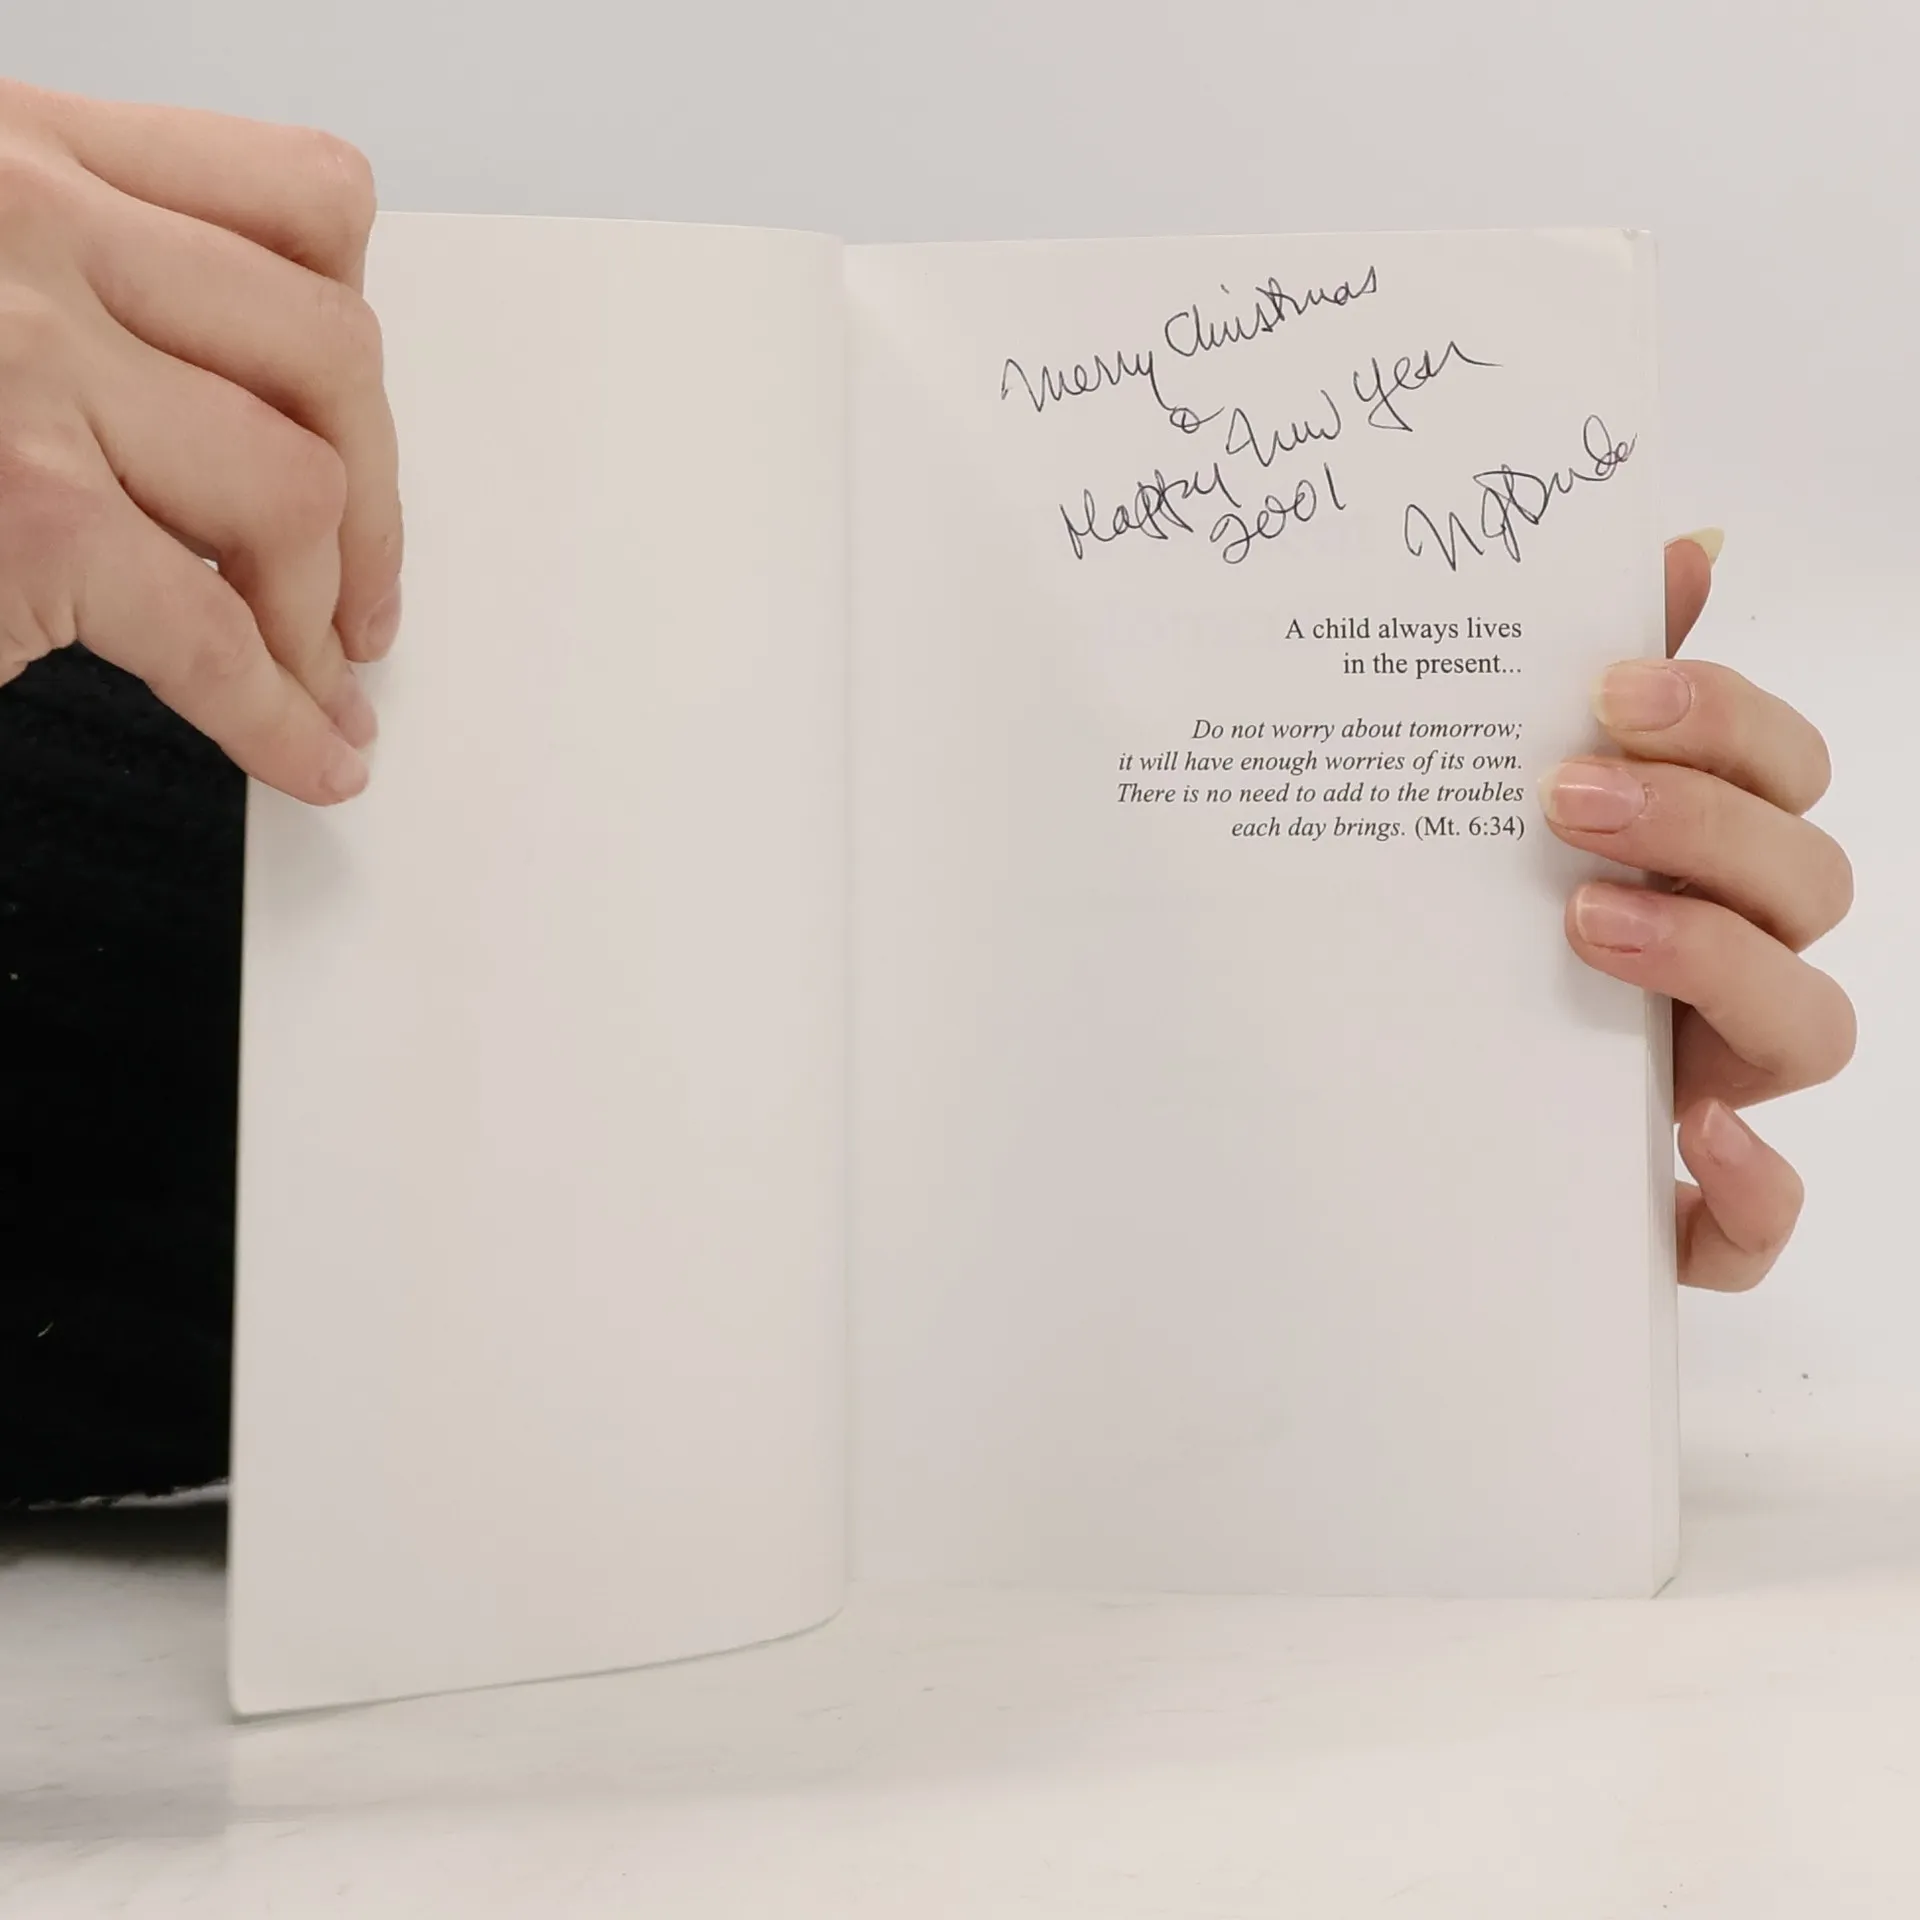 Merry Christmas
&
Happy New Year
2001
A child always lives
in the present...
Do not worry about tomorrow;
it will have enough worries of its own.
There is no need to add to the troubles
each day brings. (Mt. 6:34)